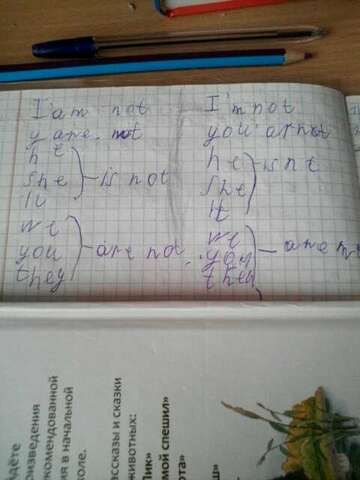 I am not
y are not
he
she
It
is not
we
you
they
are not
I'm not
you arnot
he
she
It
isnt
we
you
they
are n
йдёте
оизведения
комендованной
ия в начальной
коле.
ссказы и сказки
животных:
Пик»
мой спешил»
ота»
ш»